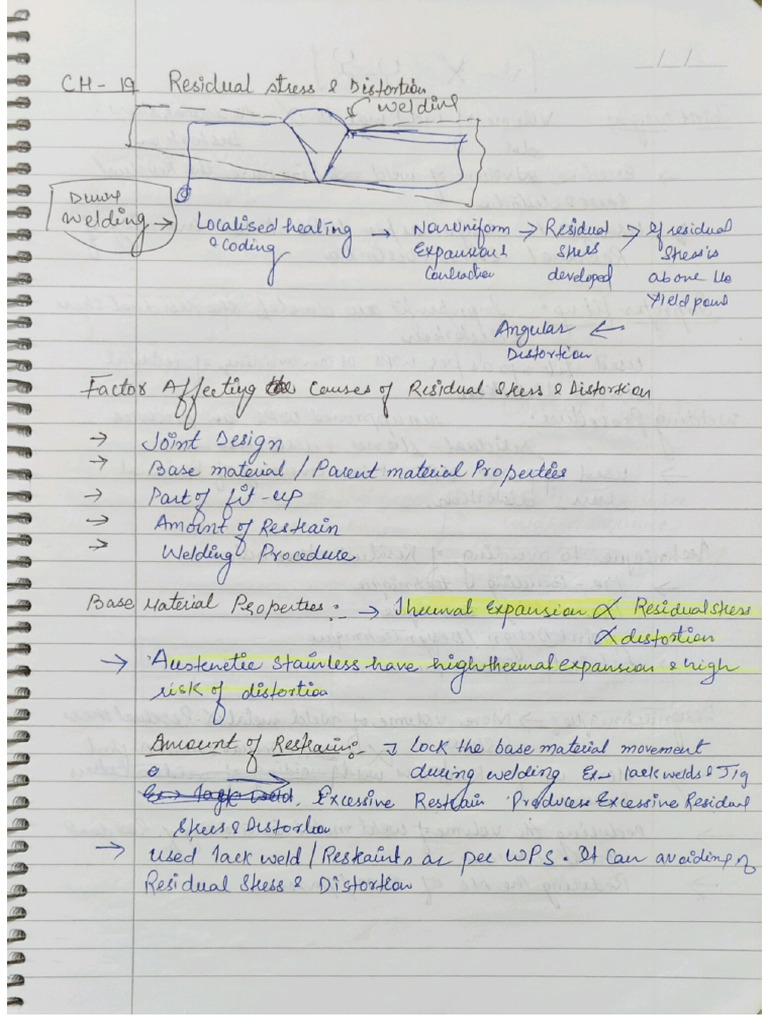 CH-19 Residual stress & Distortion
welding
During
welding → Localised heating → Nonuniform → Residual → If residual
& Cooling Expansions Stress Stress is
Contraction developed above the
Yield point
Angular ←
Distortion
Factor Affecting the Causes of Residual Stress & Distortion
→ Joint Design
→ Base material / Parent material Properties
→ Part of fit-up
→ Amount of Restrain
→ Welding Procedure
Base Material Properties:- → Thermal Expansion ∝ Residual stress
∝ distortion
→ Austenetic Stainless have high thermal expansion & high
risk of distortion
Amount of Restraing:- → Lock the base material movement
during welding Ex → tack welds & Jig
Ex → tack weld. Excessive Restrain Produces Excessive Residual
Stress & Distortion
→ used tack weld / Restraints as per WPS. It Can avoiding of
Residual Stress & Distortion